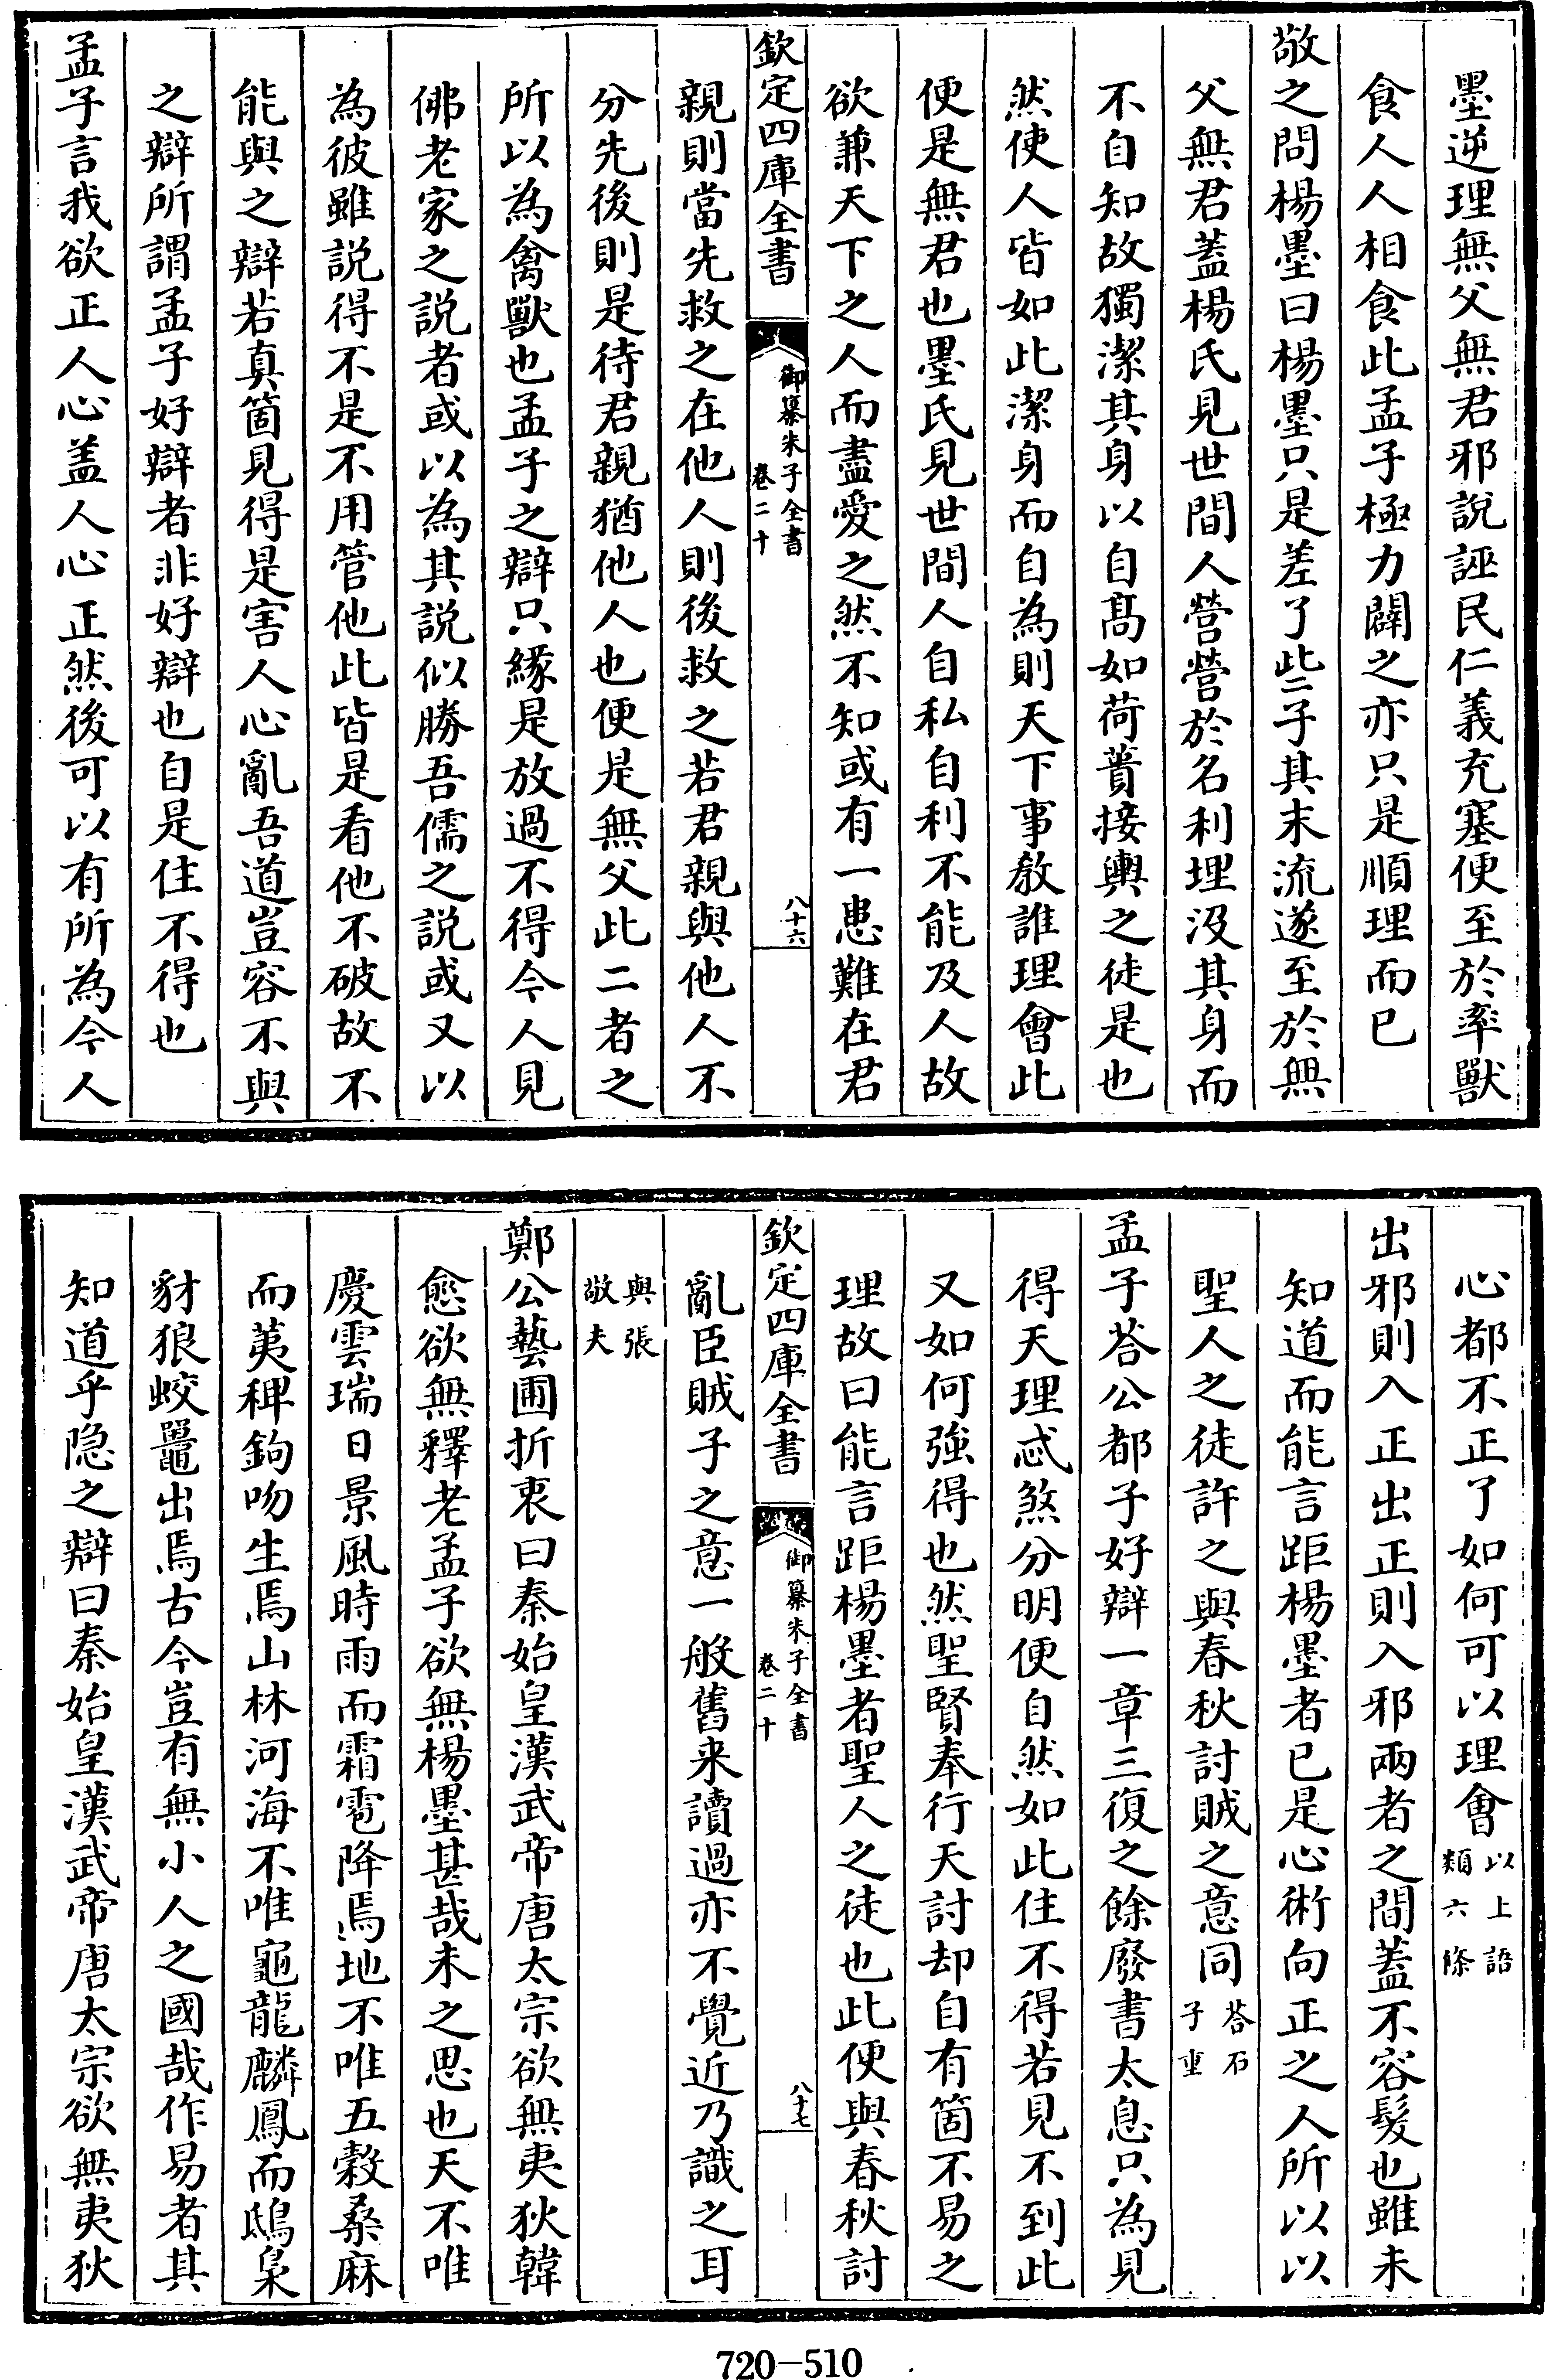 墨逆理無父無君邪說誣民仁義充塞便至於率獸
食人人相食此孟子極力闢之亦只是順理而已
敬之問楊墨曰楊墨只是差了些子其末流遂至於無
父無君蓋楊氏見世間人營營於名利埋沒其身而
不自知故獨潔其身以自髙如荷蕢接輿之徒是也
然使人皆如此潔身而自為則天下事教誰理會此
便是無君也墨氏見世間人自私自利不能及人故
欲兼天下之人而盡愛之然不知或有一患難在君
欽定四庫全書
御纂朱子全書
卷二十
八十六
親則當先救之在他人則後救之若君親與他人不
分先後則是待君親猶他人也便是無父此二者之
所以為禽獸也孟子之辯只緣是放過不得今人見
佛老家之説者或以為其説似勝吾儒之説或又以
為彼雖説得不是不用管他此皆是看他不破故不
能與之辯若真箇見得是害人心亂吾道豈容不與
之辯所謂孟子好辯者非好辯也自是住不得也
孟子言我欲正人心盖人心正然後可以有所為今人
心都不正了如何可以理會以上語
類六條
出邪則入正出正則入邪兩者之間蓋不容髮也雖未
知道而能言距楊墨者已是心術向正之人所以以
聖人之徒許之與春秋討賊之意同荅石
子重
孟子荅公都子好辯一章三復之餘廢書太息只為見
得天理忒煞分明便自然如此住不得若見不到此
又如何強得也然聖賢奉行天討却自有箇不易之
理故曰能言距楊墨者聖人之徒也此便與春秋討
欽定四庫全書
御纂朱子全書
卷二十
八十七
亂臣賊子之意一般舊来讀過亦不覺近乃識之耳
與張
敬夫
鄭公藝圃折衷曰秦始皇漢武帝唐太宗欲無夷狄韓
愈欲無釋老孟子欲無楊墨甚哉未之思也天不唯
慶雲瑞日景風時雨而霜雹降焉地不唯五穀桑麻
而荑稗鉤吻生焉山林河海不唯龜龍麟鳳而鴟梟
豺狼蛟鼉出焉古今豈有無小人之國哉作易者其
知道乎隐之辯曰秦始皇漢武帝唐太宗欲無夷狄
720-510